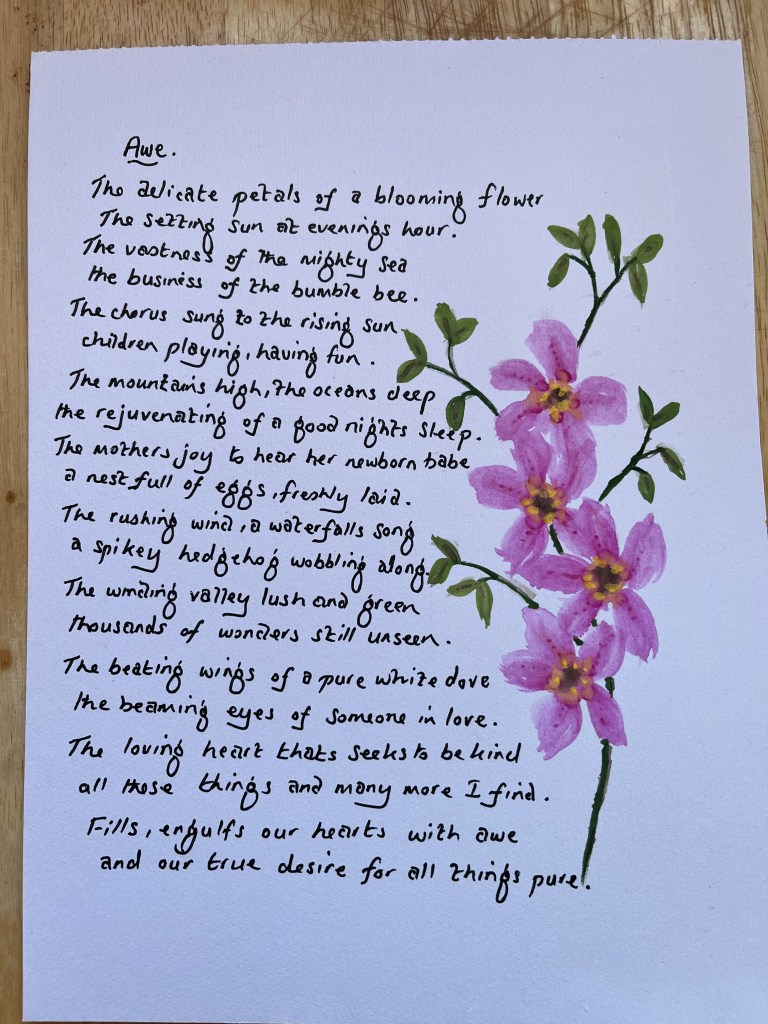 Awe.
The delicate petals of a blooming flower
The setting sun at evenings hour.
The vastness of the mighty sea
the business of the bumble bee.
The chorus sung to the rising sun
children playing, having fun.
The mountains high, the oceans deep
the rejuvenating of a good nights sleep.
The mothers joy to hear her newborn babe
a nest full of eggs, freshly laid.
The rushing wind, a waterfalls song
a spikey hedgehog wobbling along.
The winding valley lush and green
thousands of wonders still unseen.
The beating wings of a pure white dove
the beaming eyes of someone in love.
The loving heart thats seeks to be kind
all these things and many more I find.
Fills, engulfs our hearts with awe
and our true desire for all things pure.